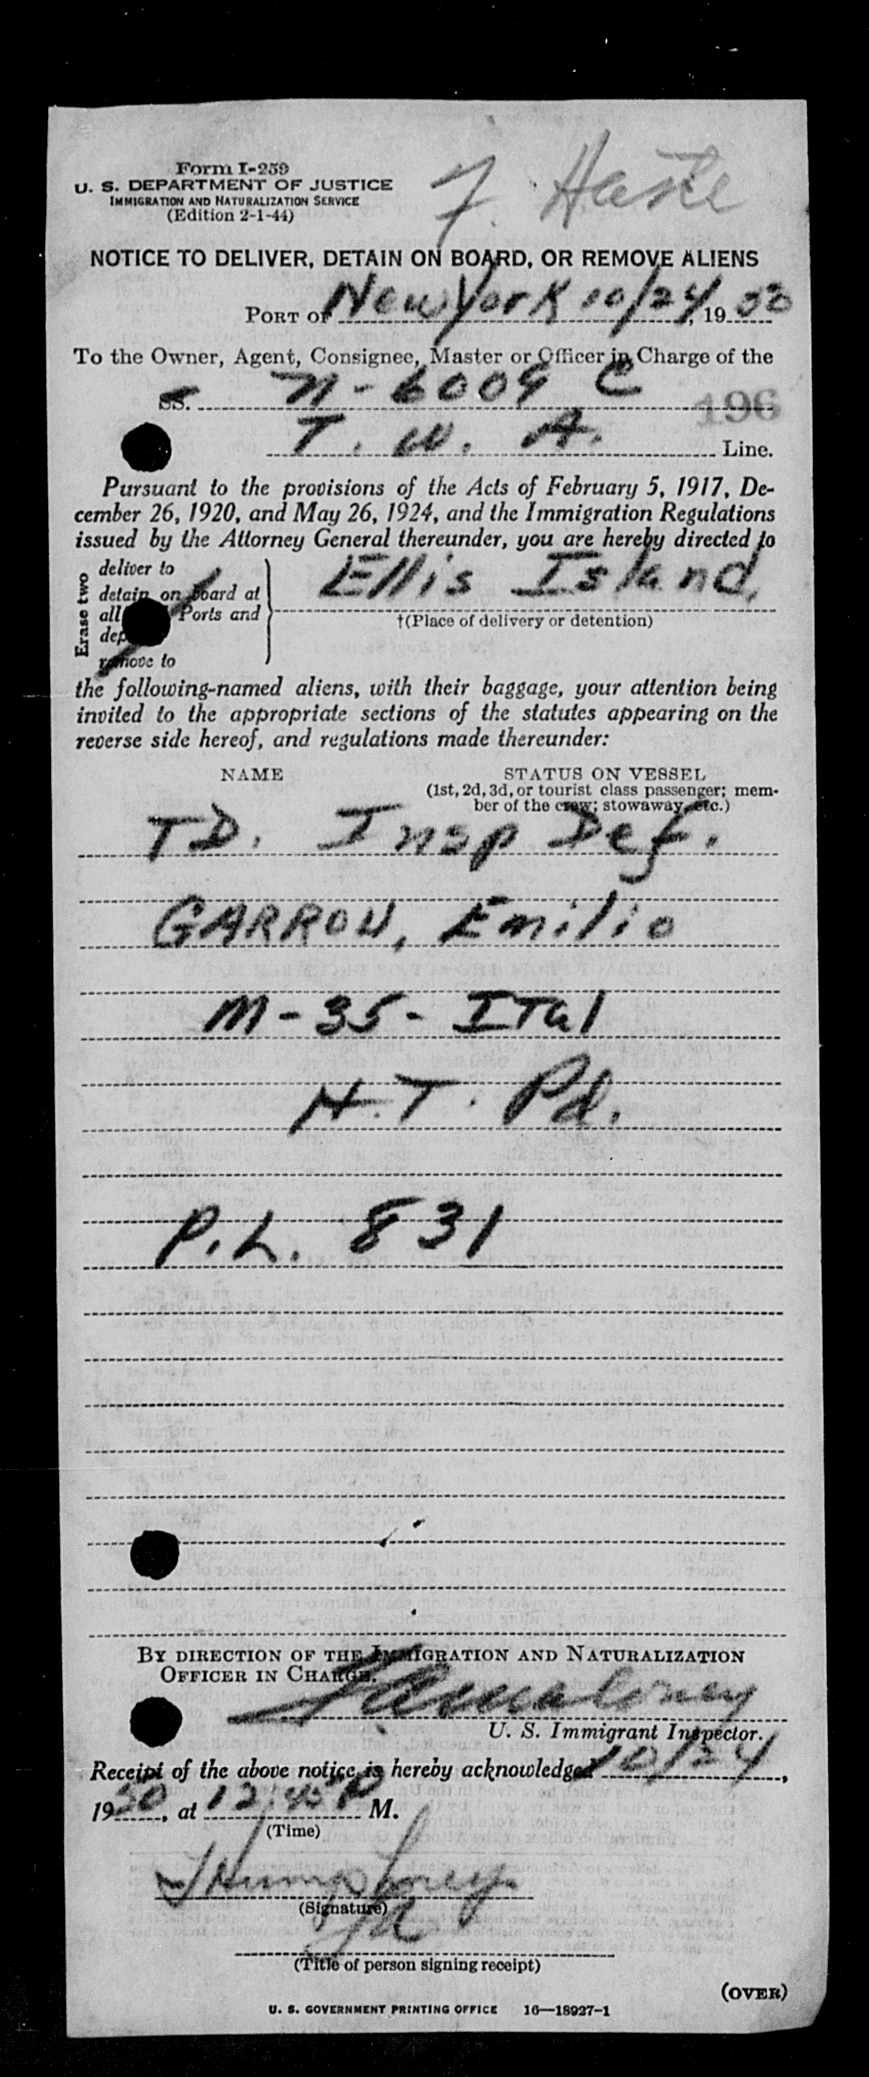 Form I-259
U. S. DEPARTMENT OF JUSTICE
IMMIGRATION AND NATURALIZATION SERVICE
(Edition 2-1-44)
NOTICE TO DELIVER, DETAIN ON BOARD, OR REMOVE ALIENS
PORT OF New York 10/24, 1950
To the Owner, Agent, Consignee, Master or Officer in Charge of the
SS. N-6009 C
196
T. W. A. Line.
Pursuant to the provisions of the Acts of February 5, 1917, De-
cember 26, 1920, and May 26, 1924, and the Immigration Regulations
issued by the Attorney General thereunder, you are hereby directed to
Erase two
deliver to
detain on board at
all Ports and
remove to
Ellis Island.
†(Place of delivery or detention)
the following-named aliens, with their baggage, your attention being
invited to the appropriate sections of the statutes appearing on the
reverse side hereof, and regulations made thereunder:
NAME STATUS ON VESSEL
(1st, 2d, 3d, or tourist class passenger; mem-
ber of the crew; stowaway, etc.)
TD. Insp Def.
GARROU, Emilio
M-35-ITal
H.T. Pd.
P.L. 831
BY DIRECTION OF THE IMMIGRATION AND NATURALIZATION
OFFICER IN CHARGE.
U. S. Immigrant Inspector.
Receipt of the above notice is hereby acknowledged 10/24,
1950, at 12:45 P M.
(Time)
Humphrey
(Signature)
(Title of person signing receipt)
(OVER)
U. S. GOVERNMENT PRINTING OFFICE 16—18927-1